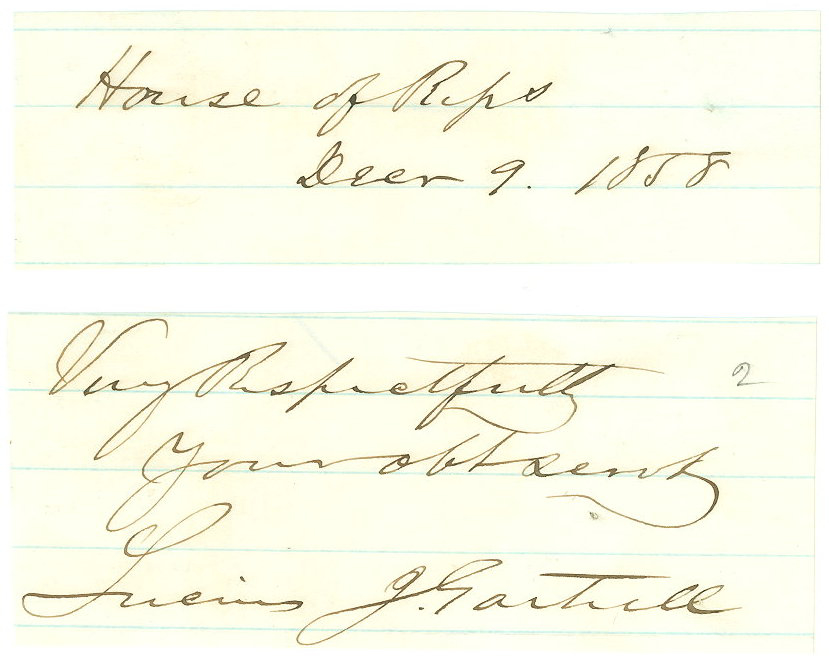 House of Reps
Decr 9. 1858
Very Respectfully 2
Your obt servt
Lucius J. Gartrell